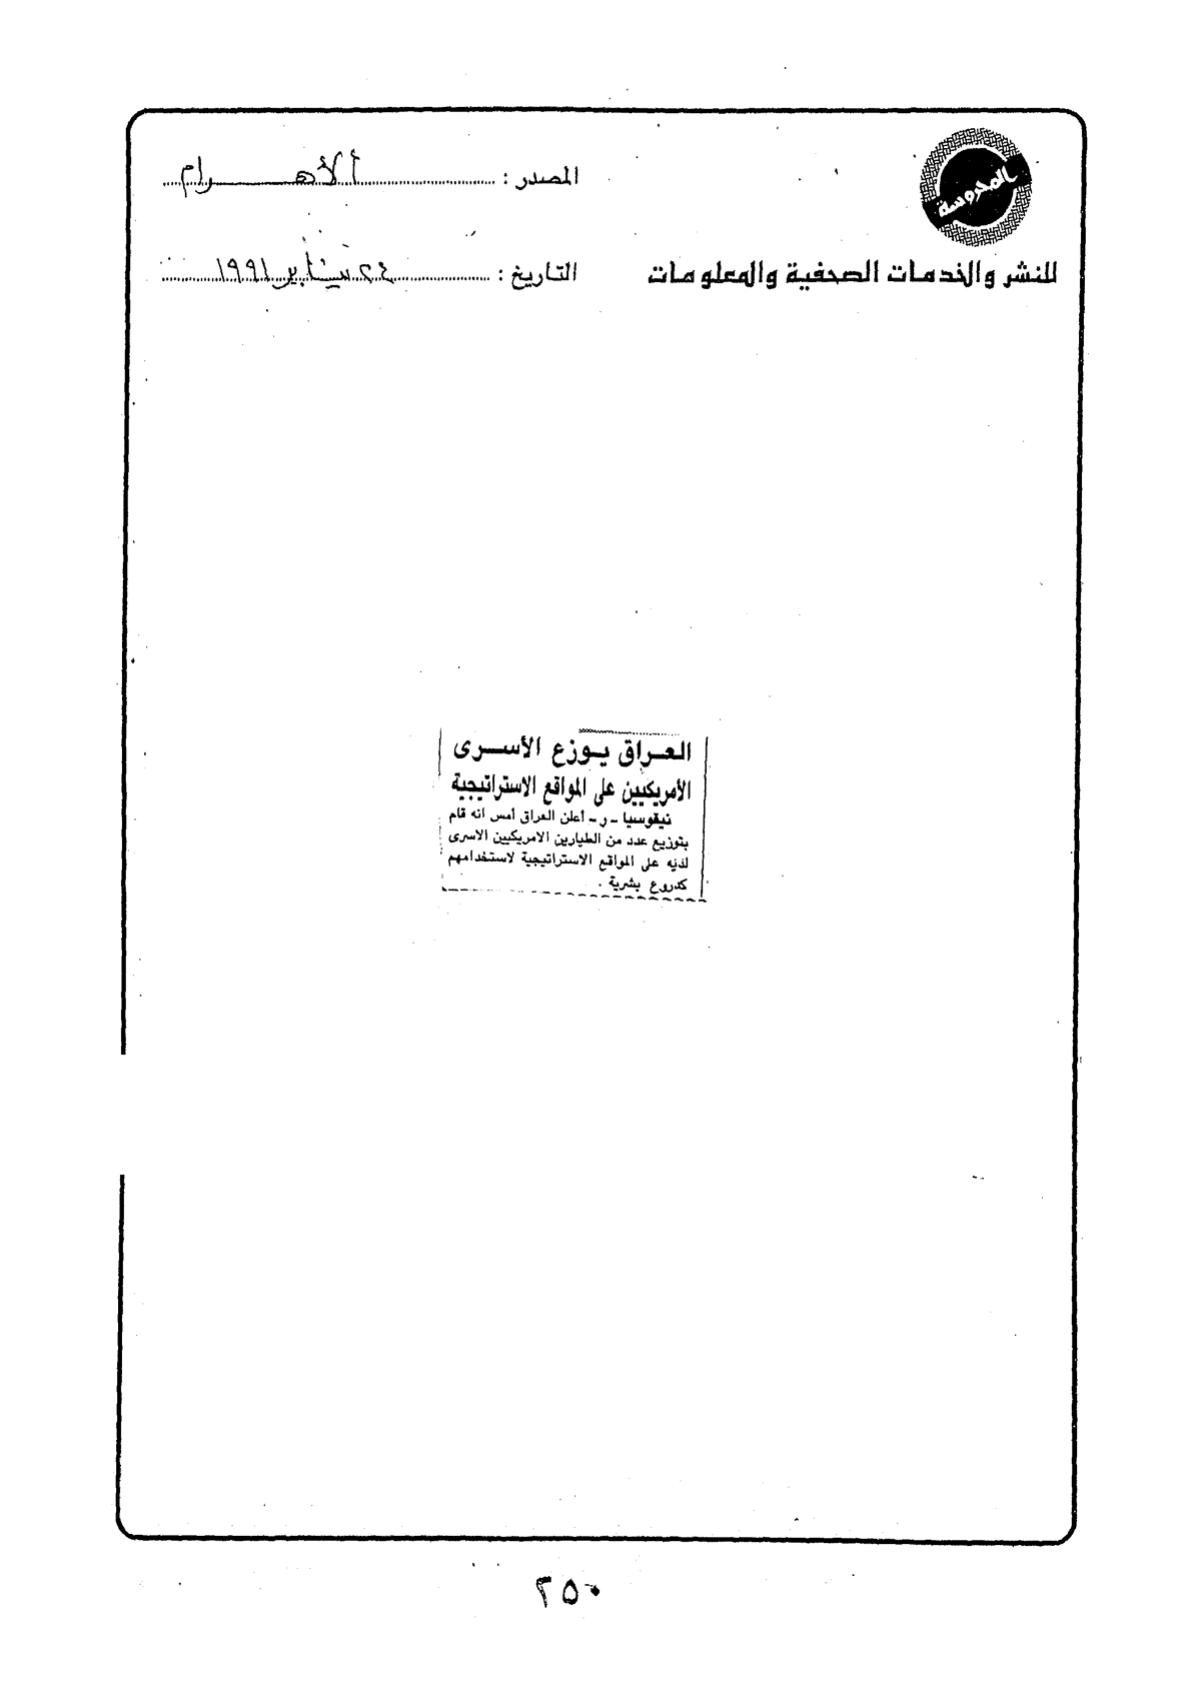 المحروسة
المصدر : الأهـــرام
للنشر والخدمات الصحفية والمعلومات
التاريخ : ٢٤ يناير ١٩٩١
العـراق يـوزع الأســرى
الأمريكيين على المواقع الاستراتيجية
نيقوسيا - ر - أعلن العراق أمس انه قام
بتوزيع عدد من الطيارين الامريكيين الاسرى
لديه على المواقع الاستراتيجية لاستخدامهم
كدروع بشرية .
٢٥٠